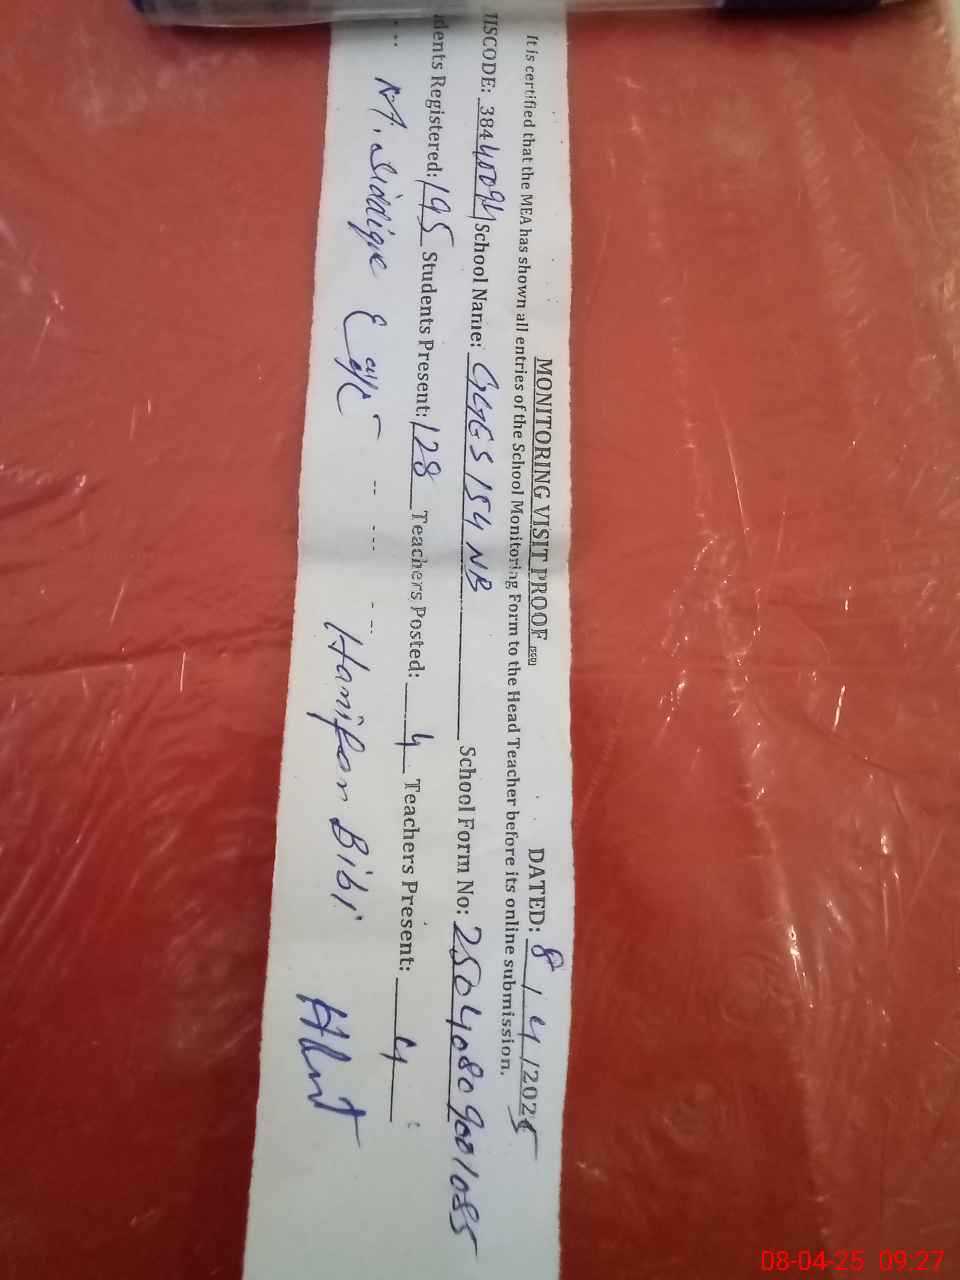 MONITORING VISIT PROOF (SED) DATED: 8 / 4 /2025
It is certified that the MEA has shown all entries of the School Monitoring Form to the Head Teacher before its online submission.
MISCODE: 38440094 School Name: GGES 154 NB School Form No: 25040809001085
dents Registered: 195 Students Present: 128 Teachers Posted: 4 Teachers Present: 4
M. Siddique Hanifan Bibi
08-04-25 09:27